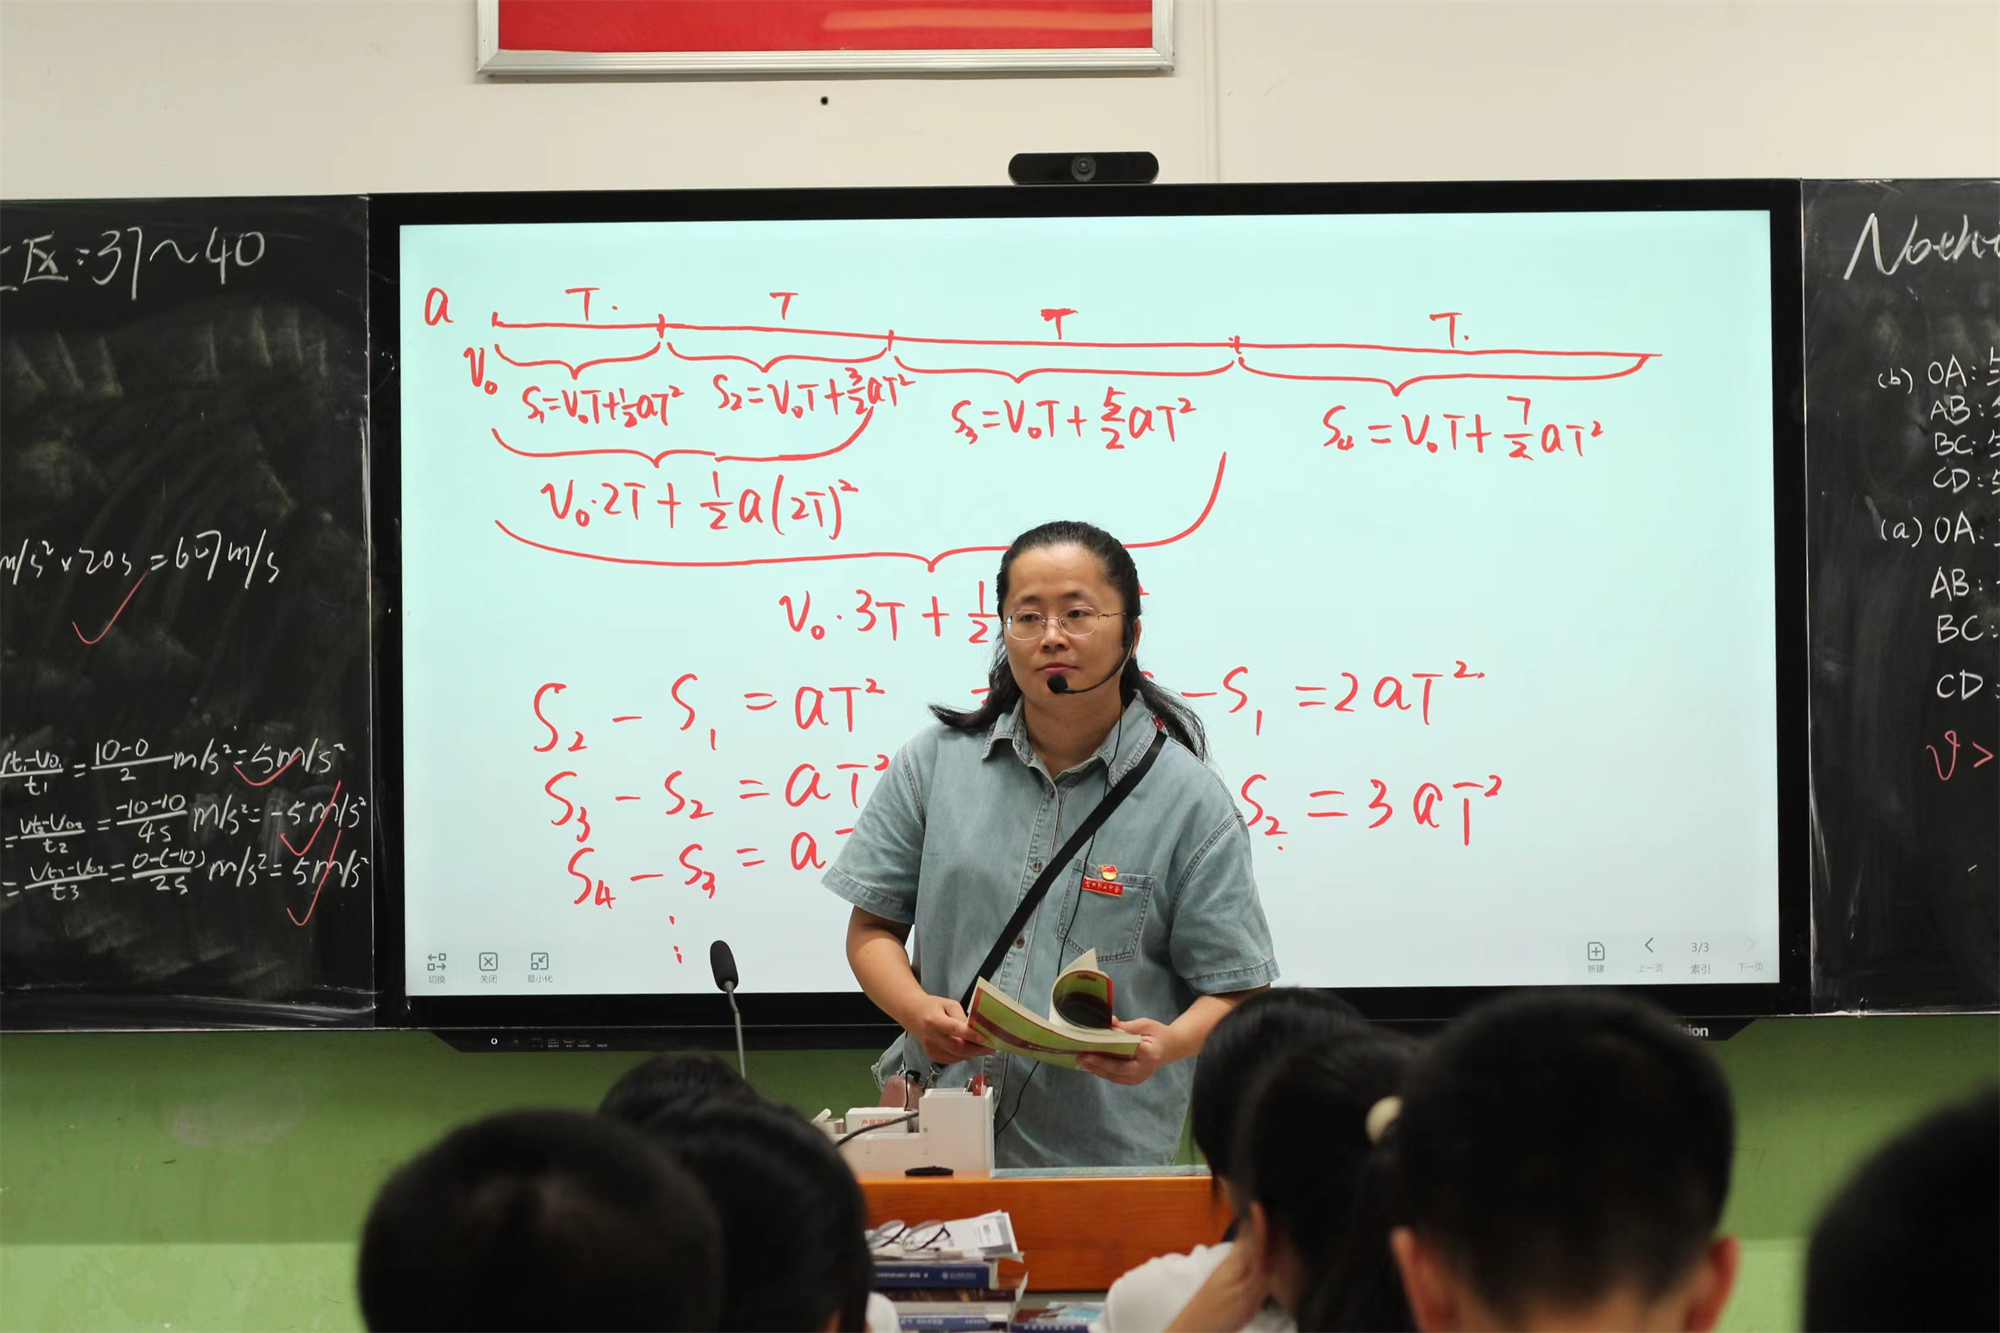 区:37~40
m/s²×20s=607m/s
=(10-0)/2 m/s²=5m/s²
=(-10-10)/4s m/s²=-5m/s²
=(0-(-10))/2s m/s²=5m/s²
a T. T T T.
V₀
S₁=V₀T+½aT² S₂=V₀T+3/2aT² S₃=V₀T+5/2aT² S₄=V₀T+7/2aT²
V₀·2T+½a(2T)²
V₀·3T+½
S₂-S₁=aT² -S₁=2aT²
S₃-S₂=aT² S₂=3aT²
S₄-S₃=a
切换 关闭 最小化
新建 上一页 3/3 索引 下一页
(b) OA:
AB:
BC:
CD:
(a) OA:
AB:
BC:
CD:
v>